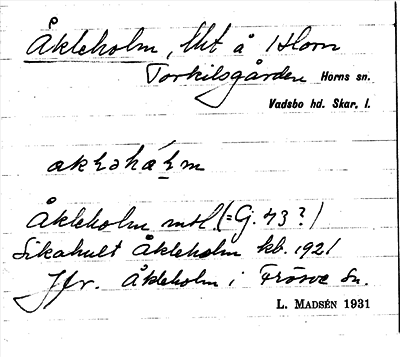 Åkleholm, lht å Horn
Torkilsgården Horns sn.
Vadsbo hd. Skar. l.
Åkleholm mtl (=G. 43?)
Sikahult Åkleholm kb. 1921
Jfr. Åkleholm i Frösve sn.
L. MADSÉN 1931